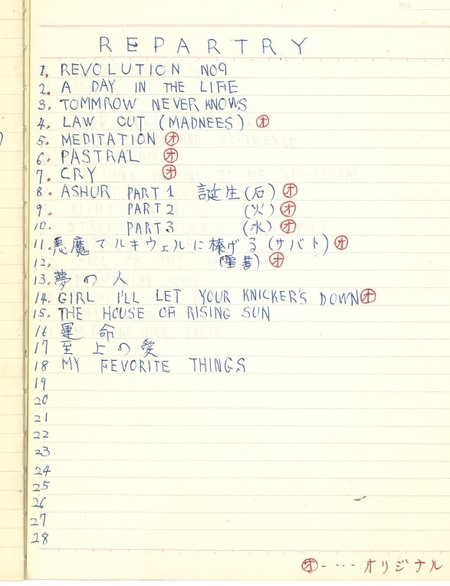 No.
REPARTRY
1. REVOLUTION NO9
2. A DAY IN THE LIFE
3. TOMMROW NEVER KNOWS
4. LAW CUT (MADNEES) ㋔
5. MEDITATION ㋔
6. PASTRAL ㋔
7. CRY ㋔
8. ASHUR PART 1 誕生(石) ㋔
9. PART 2 (火) ㋔
10. PART 3 (水) ㋔
11. 悪魔マルキウェルに捧げる(サバト) ㋔
12. (聖書) ㋔
13. 夢の人
14. GIRL I'LL LET YOUR KNICKER'S DOWN ㋔
15. THE HOUSE OF RISING SUN
16 運命
17 至上の愛
18 MY FEVORITE THINGS
19
20
21
22
23
24
25
26
27
28
㋔-・・・オリジナル